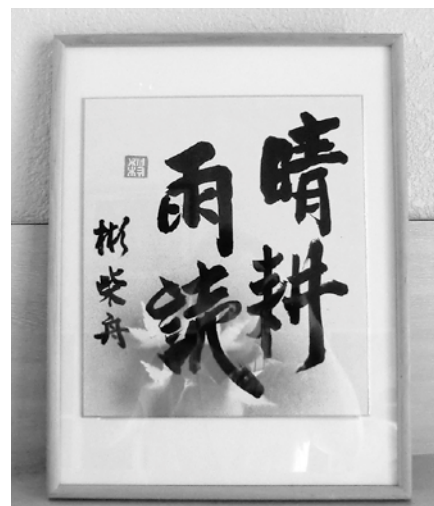 晴耕
雨読
彬柴舟